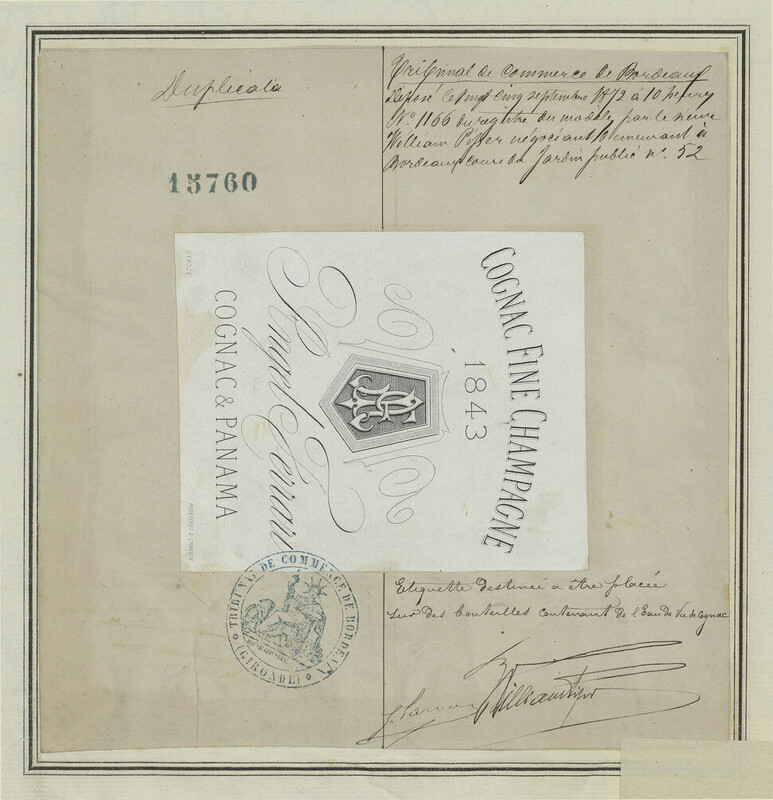 Duplicata
15760
Tribunal de Commerce de Bordeaux
Déposé le vingt cinq septembre 1872 à 10 heures
N° 1166 du registre des modèles par le sieur
William négociant demeurant à
Bordeaux cours du Jardin public n°. 52
COGNAC FINE CHAMPAGNE
1843
Angel Ferrari
COGNAC & PANAMA
DÉPOSÉ
TRIBUNAL DE COMMERCE DE BORDEAUX
(GIRONDE)
Etiquette destinée a être placée
sur des bouteilles contenant de l'Eau de Vie de Cognac